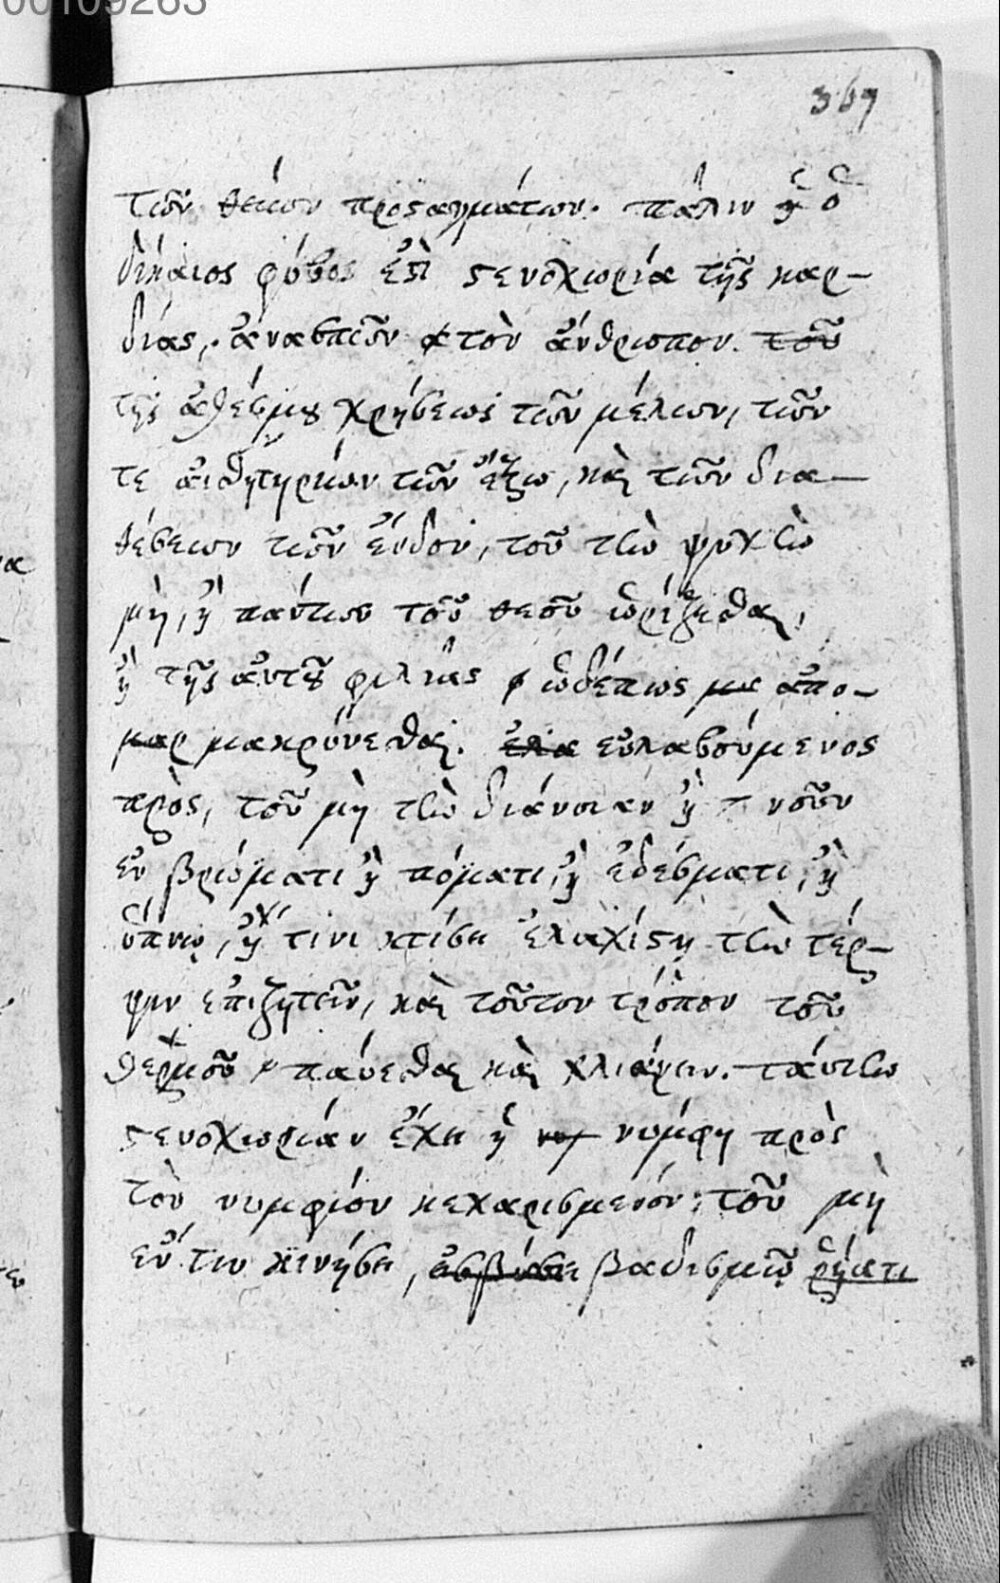 00109263
367
τῶν θείων προσταγμάτων. πάλιν ἢ ὁ
δίκαιος φόβος ἐστὶ στενοχωρία τῆς καρ-
δίας, ἀνασπῶν τὸν ἄνθρωπον τοῦ
τῆς ἀθέσμου χρήσεως τῶν μελῶν, τῶν
τε αἰσθητηρίων τῶν ἔξω, καὶ τῶν δια-
θέσεων τῶν ἔνδον, τοῦ τὴν ψυχὴν
μὴ, ἢ πάντων τοῦ θεοῦ χωρίζεσθαι,
ἢ τῆς αὐτοῦ φιλίας οὐδέπως με απο-
μαρ μακρύνεσθαι. ἐλα εὐλαβούμενος
πρὸς, τοῦ μὴ τὴν διάνοιαν ἢ τ νοῦν
ἐν βρώματι ἢ πόματι, ἢ ἐδέσματι, ἢ
ὕπνῳ, ἢ τίνι κτίσει ἐλαχίστῃ τὴν τέρ-
ψιν ἐπιζητεῖν, καὶ τοῦτον τρόπον τοῦ
θερμοῦ παύεσθαι καὶ χλιάνειν. ταύτην
στενοχωρίαν ἔχει ἡ νυμ νύμφη πρὸς
τὸν νυμφίον κεχαρισμένον: τοῦ μὴ
ἔν τινι κινήσει, βαδισμῷ ῥήματι